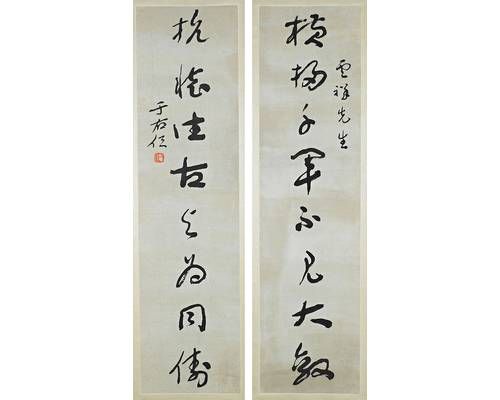 雲祥先生
橫掃千軍不見大敵
抗懷往古與為同儔
于右任